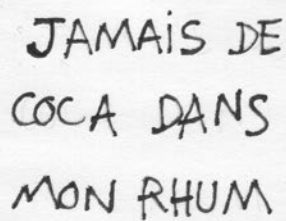 JAMAIS DE
COCA DANS
MON RHUM